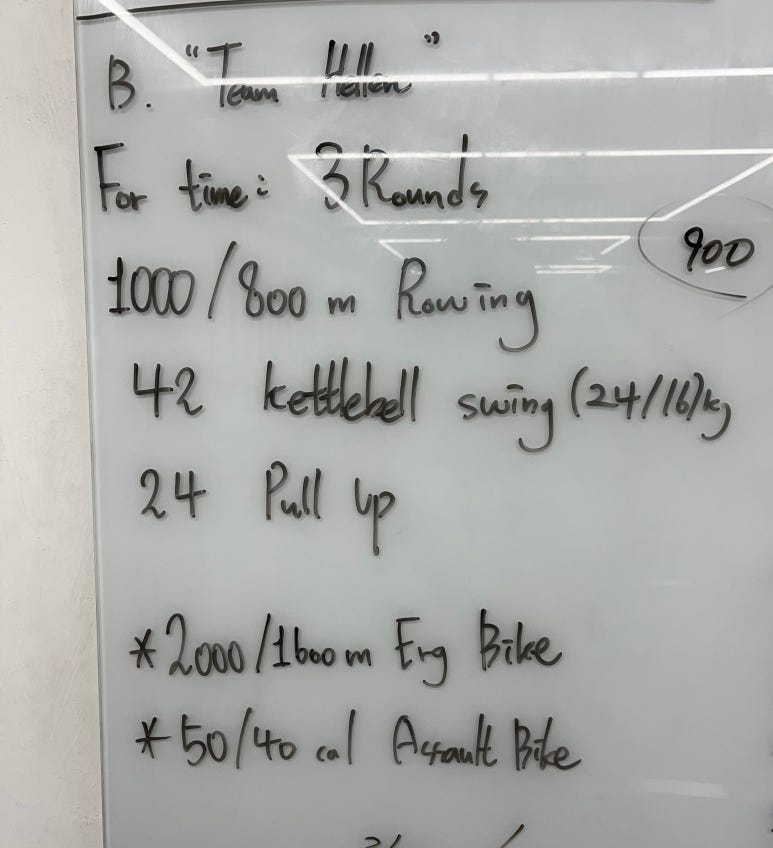 B. "Team Hellen"
For time: 3 Rounds
900
1000/800 m Rowing
42 kettlebell swing (24/16)kg
24 Pull up
*2000/1600m Erg Bike
*50/40 cal Assault Bike